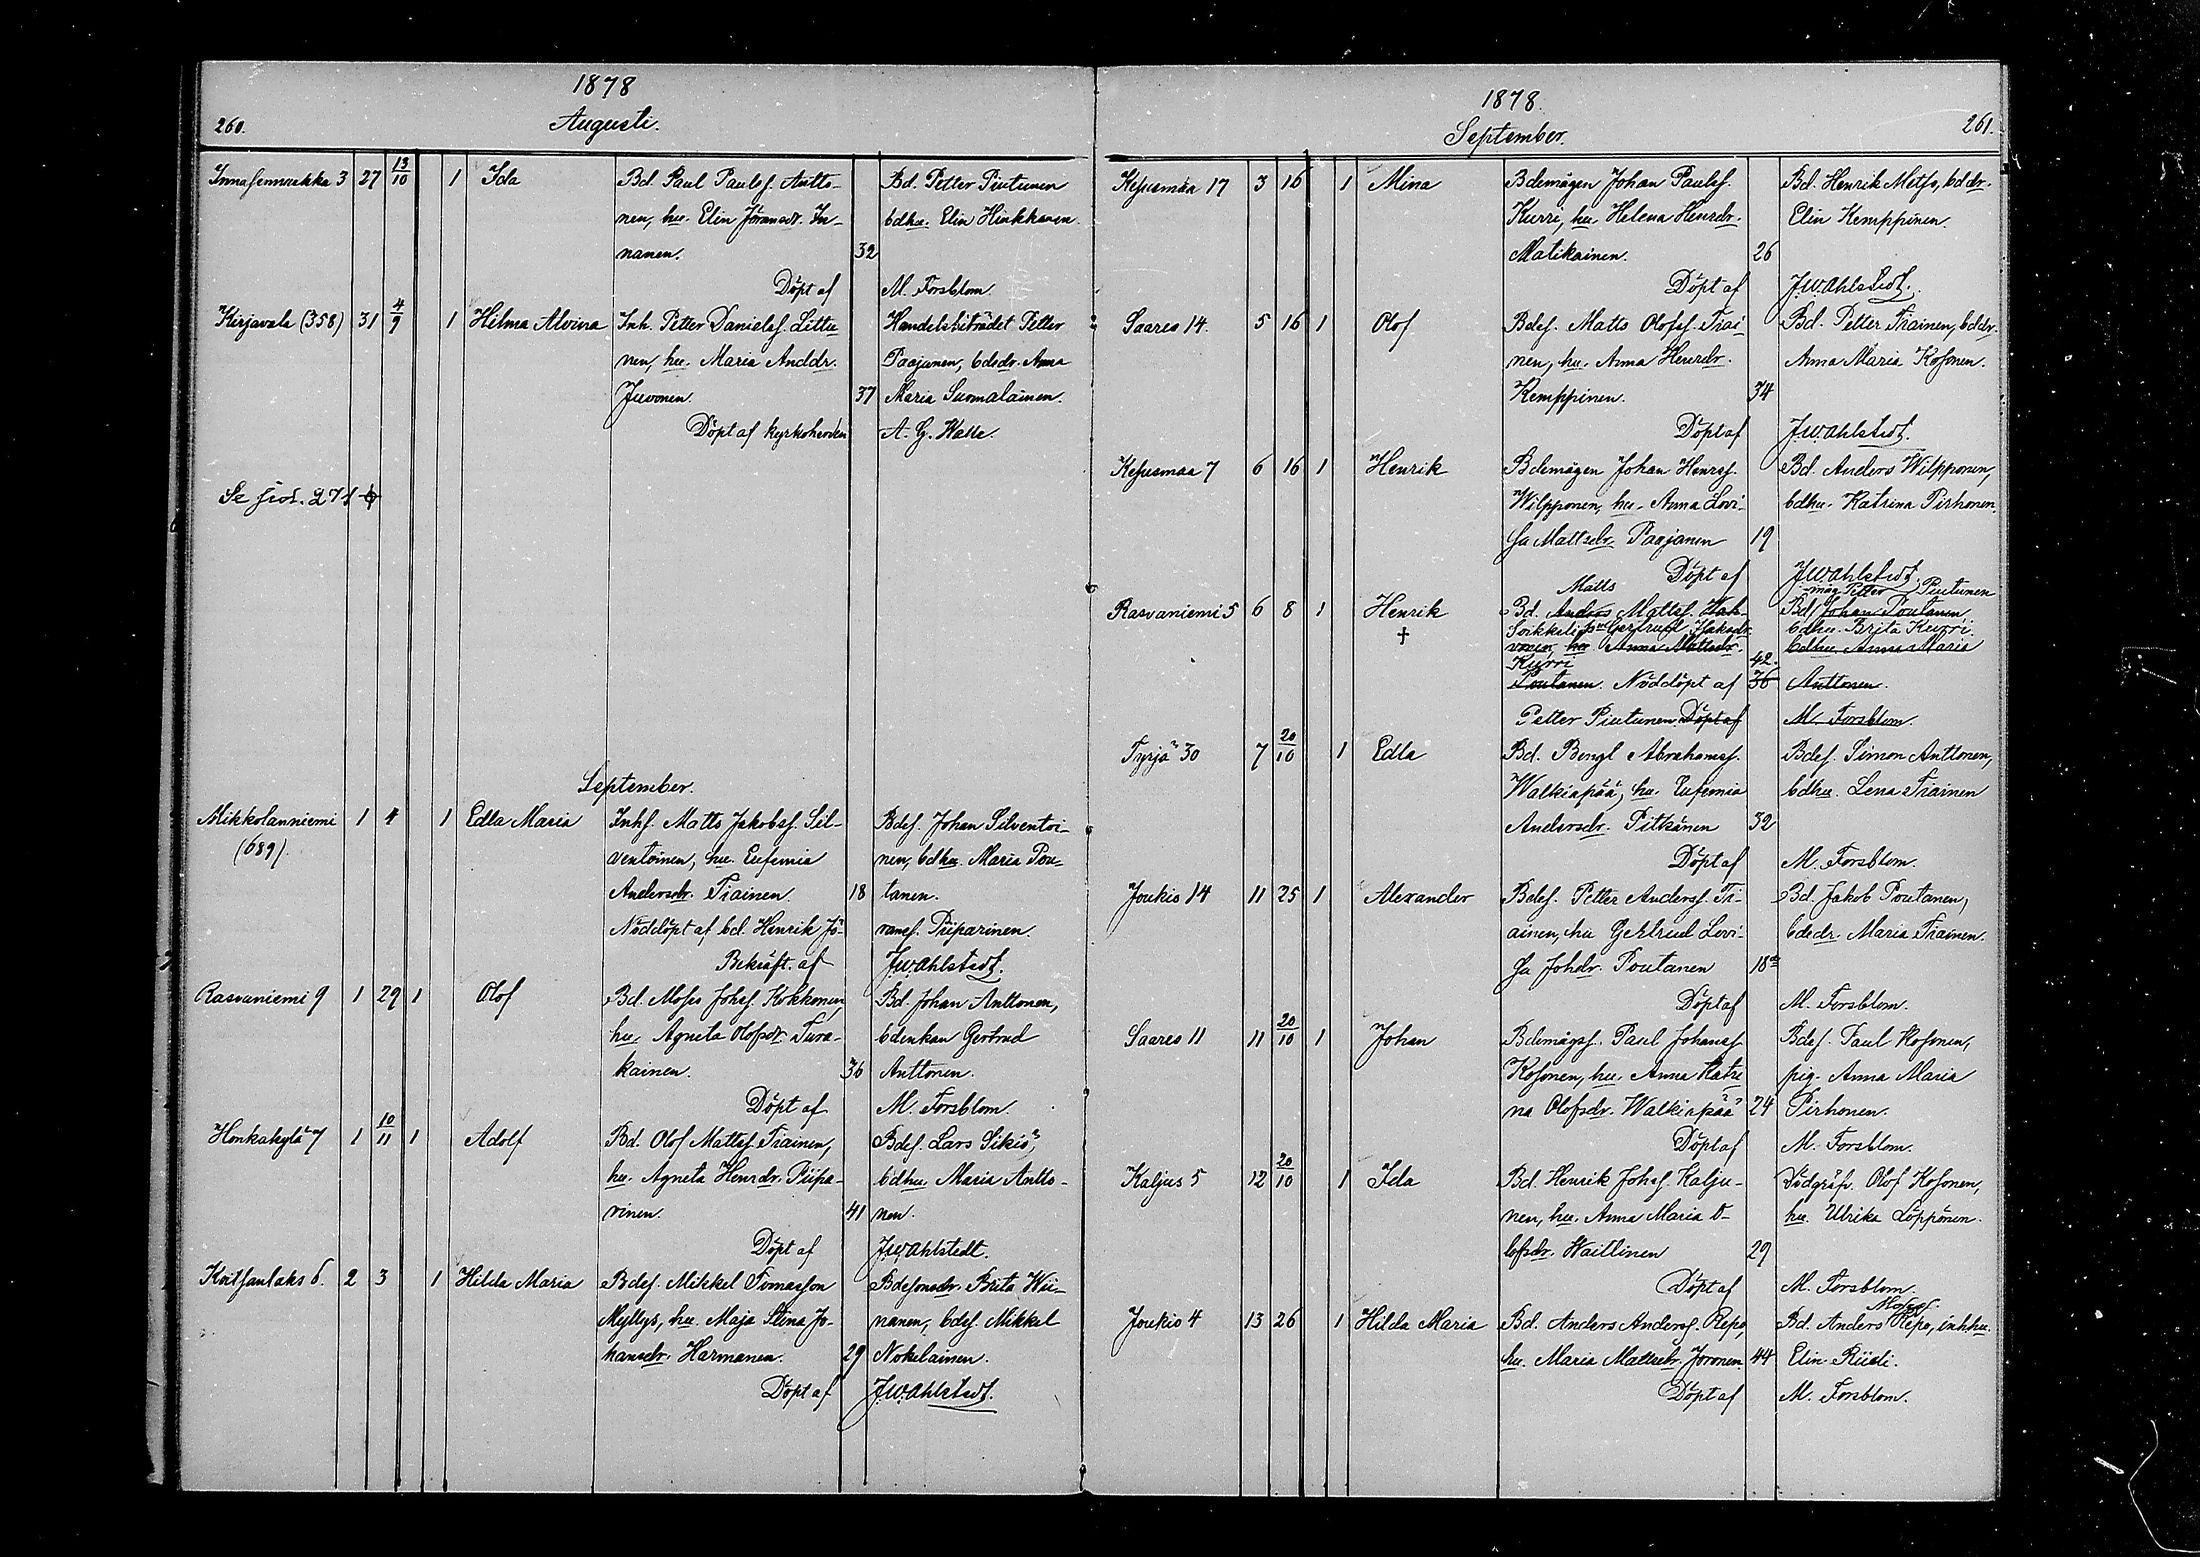 1878
260.
Augusti.
Innasennaukka 3 27 13/10 1 Ida Bd. Paul Paulss. Antto- Bd. Petter Piutunen
nen, hu. Elin Jöransdr. In- bdhu. Elin Hinkkanen.
nanen. 32
Döpt af M. Forsblom.
Kirjavala (358) 31 4/9 1 Hilma Alvina Inh. Petter Danielss. Littu Handelsbiträdet Petter
nen, hu. Maria Anddr. Paajanen, bdsdr. Anna
Juvonen. 37 Maria Suomalainen.
Döpt af kyrkoherden A. G. Walle.
Se sid. 271
September.
Mikkolanniemi 1 4 1 Edla Maria Inhs. Matts Jakobss. Sil- Bdes. Johan Silventoi-
(689) ventoinen, hu. Eufemia nen, bdhu. Maria Pou-
Andersdr. Tiainen. 18 tanen.
Nöddöpt af bd. Henrik Jö- ranss. Piiparinen.
Bekräft. af J.W. Ahlstedt.
Rasvaniemi 9 1 29 1 Olof Bd. Moses Johss. Kokkonen, Bd. Johan Anttonen,
hu. Agneta Olofsdr. Tura- bdenkan Gertrud
kainen. 36 Anttonen.
Döpt af M. Forsblom.
Honkakylä 7 1 10/11 1 Adolf Bd. Olof Mattss. Tiainen, Bdes. Lars Sikiö,
hu. Agneta Henrdr. Piipa- bdhu. Maria Antto-
rinen. 41 nen.
Döpt af J.W. Ahlstedt.
Koitsanlaks 6. 2 3 1 Hilda Maria Bdes. Mikkel Tomasson Bdesonsdr. Brita Wii-
Myllys, hu. Maja Stina Jo- nanen, bdes. Mikkel
hansdr. Harmanen. 29 Nokelainen.
Döpt af J.W. Ahlstedt.
1878.
261.
September.
Kesusmaa 17 3 16 1 Mina Bdemågen Johan Paulss. Bd. Henrik Metso, bddr.
Kurri, hu. Helena Henrdr. Elin Kemppinen.
Matikainen. 26
Döpt af J.W. Ahlstedt.
Saares 14. 5 16 1 Olof Bdes. Matts Olofss. Tiai Bd. Petter Tiainen, bddr.
nen, hu. Anna Henrdr. Anna Maria Kosonen.
Kemppinen. 34
Döpt af J.W. Ahlstedt.
Kesusmaa 7 6 16 1 Henrik Bdemågen Johan Henrss. Bd. Anders Wilpponen,
Wilpponen, hu. Anna Lovi- bdhu. Katrina Pirhonen.
sa Mattsdr. Paajanen 19
Döpt af J.W. Ahlstedt.
Matts måg Petter Piutunen
Rasvaniemi 5 6 8 1 Henrik Bd. Anders Mattss. Hak- Bd. Johan Poutanen,
† Soikkeli, hu Gertrud Isaksdr. bdhu. Brita Kurri.
hu. Anna Mattsdr. bdhu. Anna Maria
Kurri 42.
Poutanen. Nöddöpt af 36 Anttonen.
Petter Piutunen Döpt af M. Forsblom.
Tyrjä 30 7 20/10 1 Edla Bd. Bengt Abrahamss. Bdes. Simon Anttonen,
Walkiapää, hu. Eufemia bdhu. Lena Tiainen
Andersdr. Pitkänen 32
Döpt af M. Forsblom.
Joukio 14 11 25 1 Alexander Bdes. Petter Anderss. Ti- Bd. Jakob Poutanen,
ainen, hu Gertrud Lovi- bdedr. Maria Tiainen.
sa Johdr. Poutanen 18
Döpt af M. Forsblom.
Saares 11 11 20/10 1 Johan Bdemågss. Paul Johanss. Bdes. Paul Kosonen,
Kosonen, hu. Anna Katri pig. Anna Maria
na Olofsdr. Walkiapää 24 Pirhonen.
Döpt af M. Forsblom.
Kaljus 5 12 20/10 1 Ida Bd. Henrik Johss. Kalju- Dödgräfv. Olof Kosonen,
nen, hu. Anna Maria O- hu. Ulrika Löppönen.
lofsdr. Waittinen 29
Döpt af M. Forsblom.
Mosess.
Joukio 4 13 26 1 Hilda Maria Bd. Anders Anderss. Repo, Bd. Anders Repo, inhhu.
hu. Maria Mattsdr. Joronen 44 Elin Riisli.
Döpt af M. Forsblom.